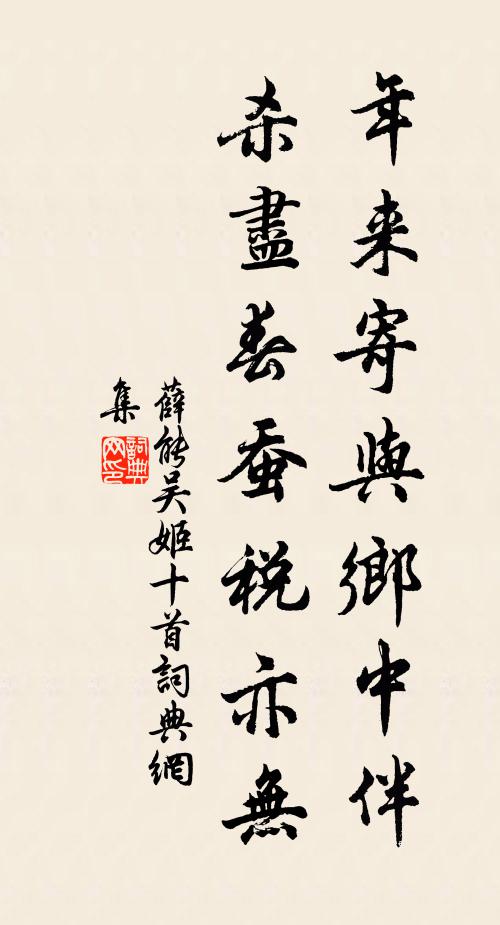 年来寄與鄉中伴
杀盡春蚕税亦無
薛能吴姬十首詞典網
集
詞典网印